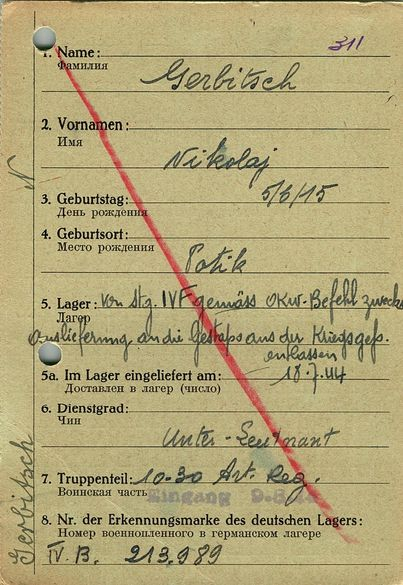 311
1. Name:
Фамилия
Gerbitsch
2. Vornamen:
Имя
Nikolaj
3. Geburtstag: 5/6/15
День рождения
4. Geburtsort:
Место рождения
Potik
5. Lager: von Stg. IVF gemäss OKW-Befehl zwecks
Лагер
Auslieferung an die Gestapo aus der Kriegsgefs.
entlassen
5a. Im Lager eingeliefert am: 18.7.44
Доставлен в лагер (число)
6. Dienstgrad:
Чин
Unter-Leutnant
7. Truppenteil: 10-30 Art. Reg.
Воинская часть
Eingang
8. Nr. der Erkennungsmarke des deutschen Lagers:
Номер военнопленного в германском лагере
IV. B. 213.989
N
Gerbitsch